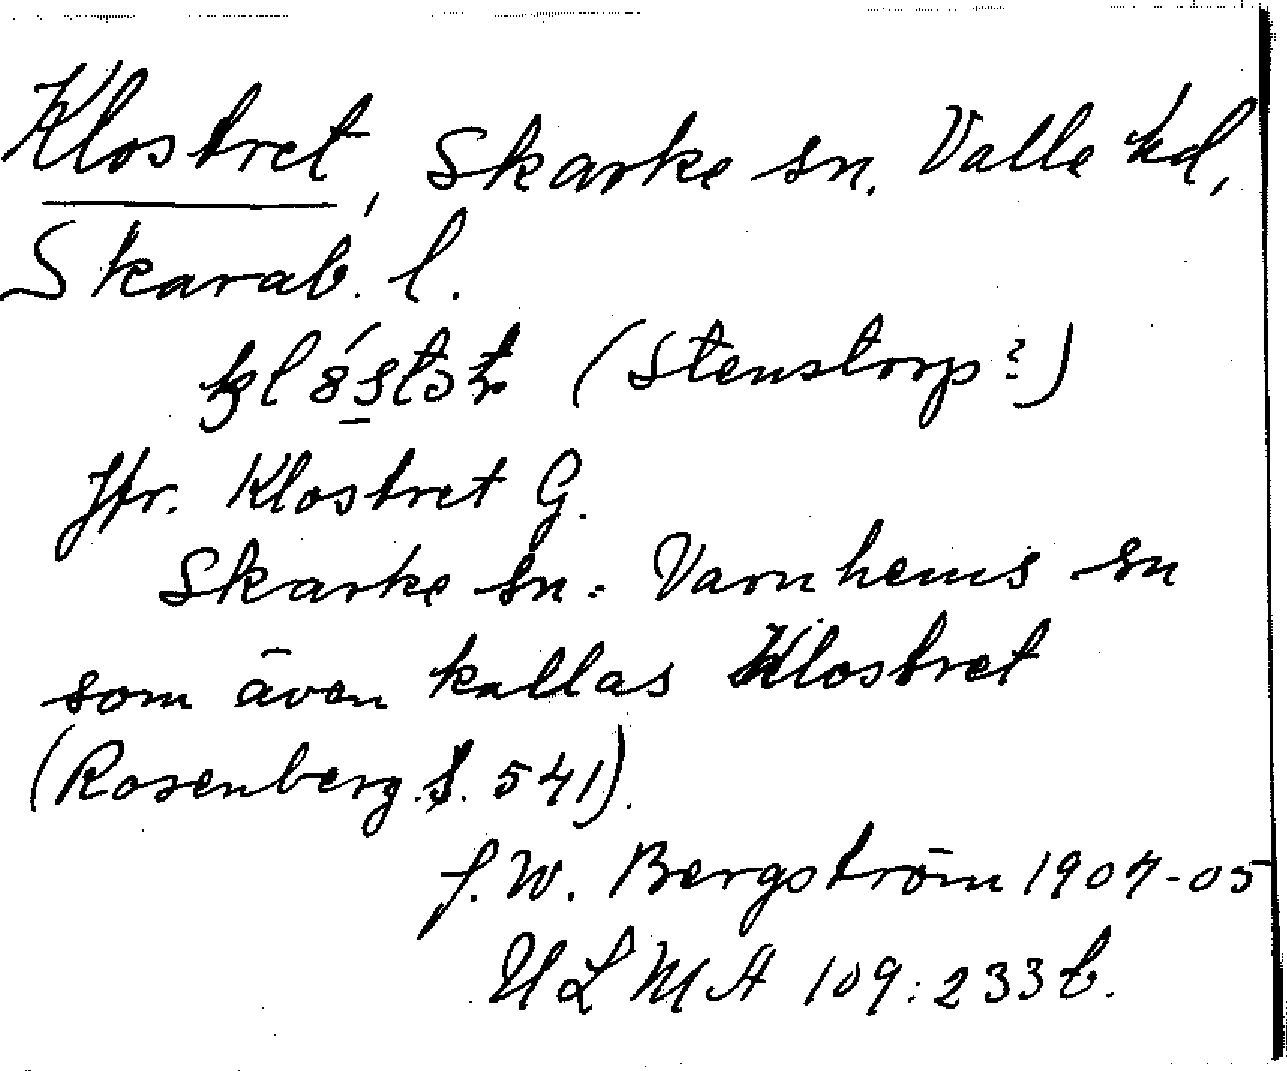 Klostret, Skarke sn. Valle hd,
Skarab. l.
(Stenstorp?)
Jfr. Klostret G.
Skarke sn. = Varnhems sn
som även kallas Klostret
(Rosenberg. s. 541).
J. W. Bergström 1904-05
ULMA 109:233 b.